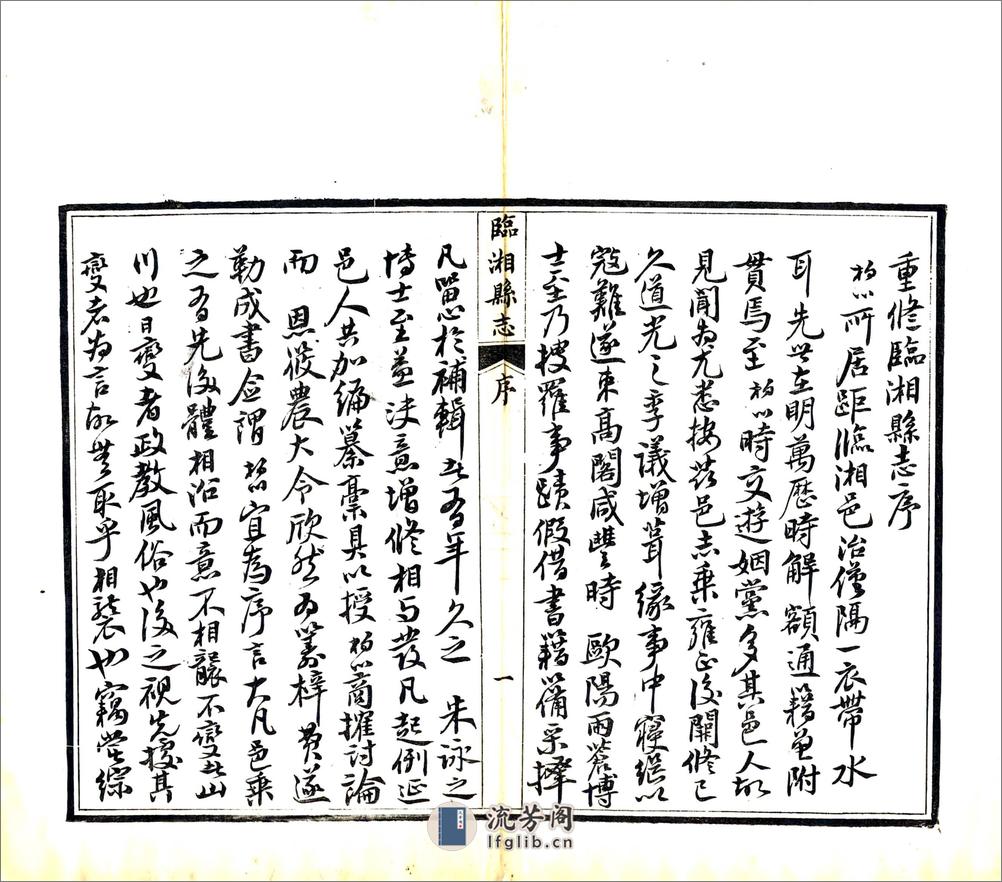 重修臨湘縣志序
柏心所居距臨湘邑治僅隔一衣帶水
耳先世在明萬歷時解額通籍曾附
貫焉至柏心時交遊姻黨多其邑人故
見聞為尤悉按茲邑志乘雍正後闕修已
久道光之季議增葺緣事中寢繼以
寇難遂束高閣咸豐時 歐陽雨蒼博
士至乃搜羅事蹟假借書籍以備采擇
臨湘縣志 序 一
凡留心於補輯者有年久之 朱詠之
博士至益決意增修相與發凡起例延
邑人共加編纂藁具以授柏心商搉討論
而 恩筱農大令欣然為籌梓費遂
勒成書僉謂柏心宜為序言大凡邑乘
之有先後體相沿而意不相襲不變者山
川也日變者政教風俗也後之視先據其
變者為言故無取乎相襲也竊嘗綜
流芳阁
lfglib.cn